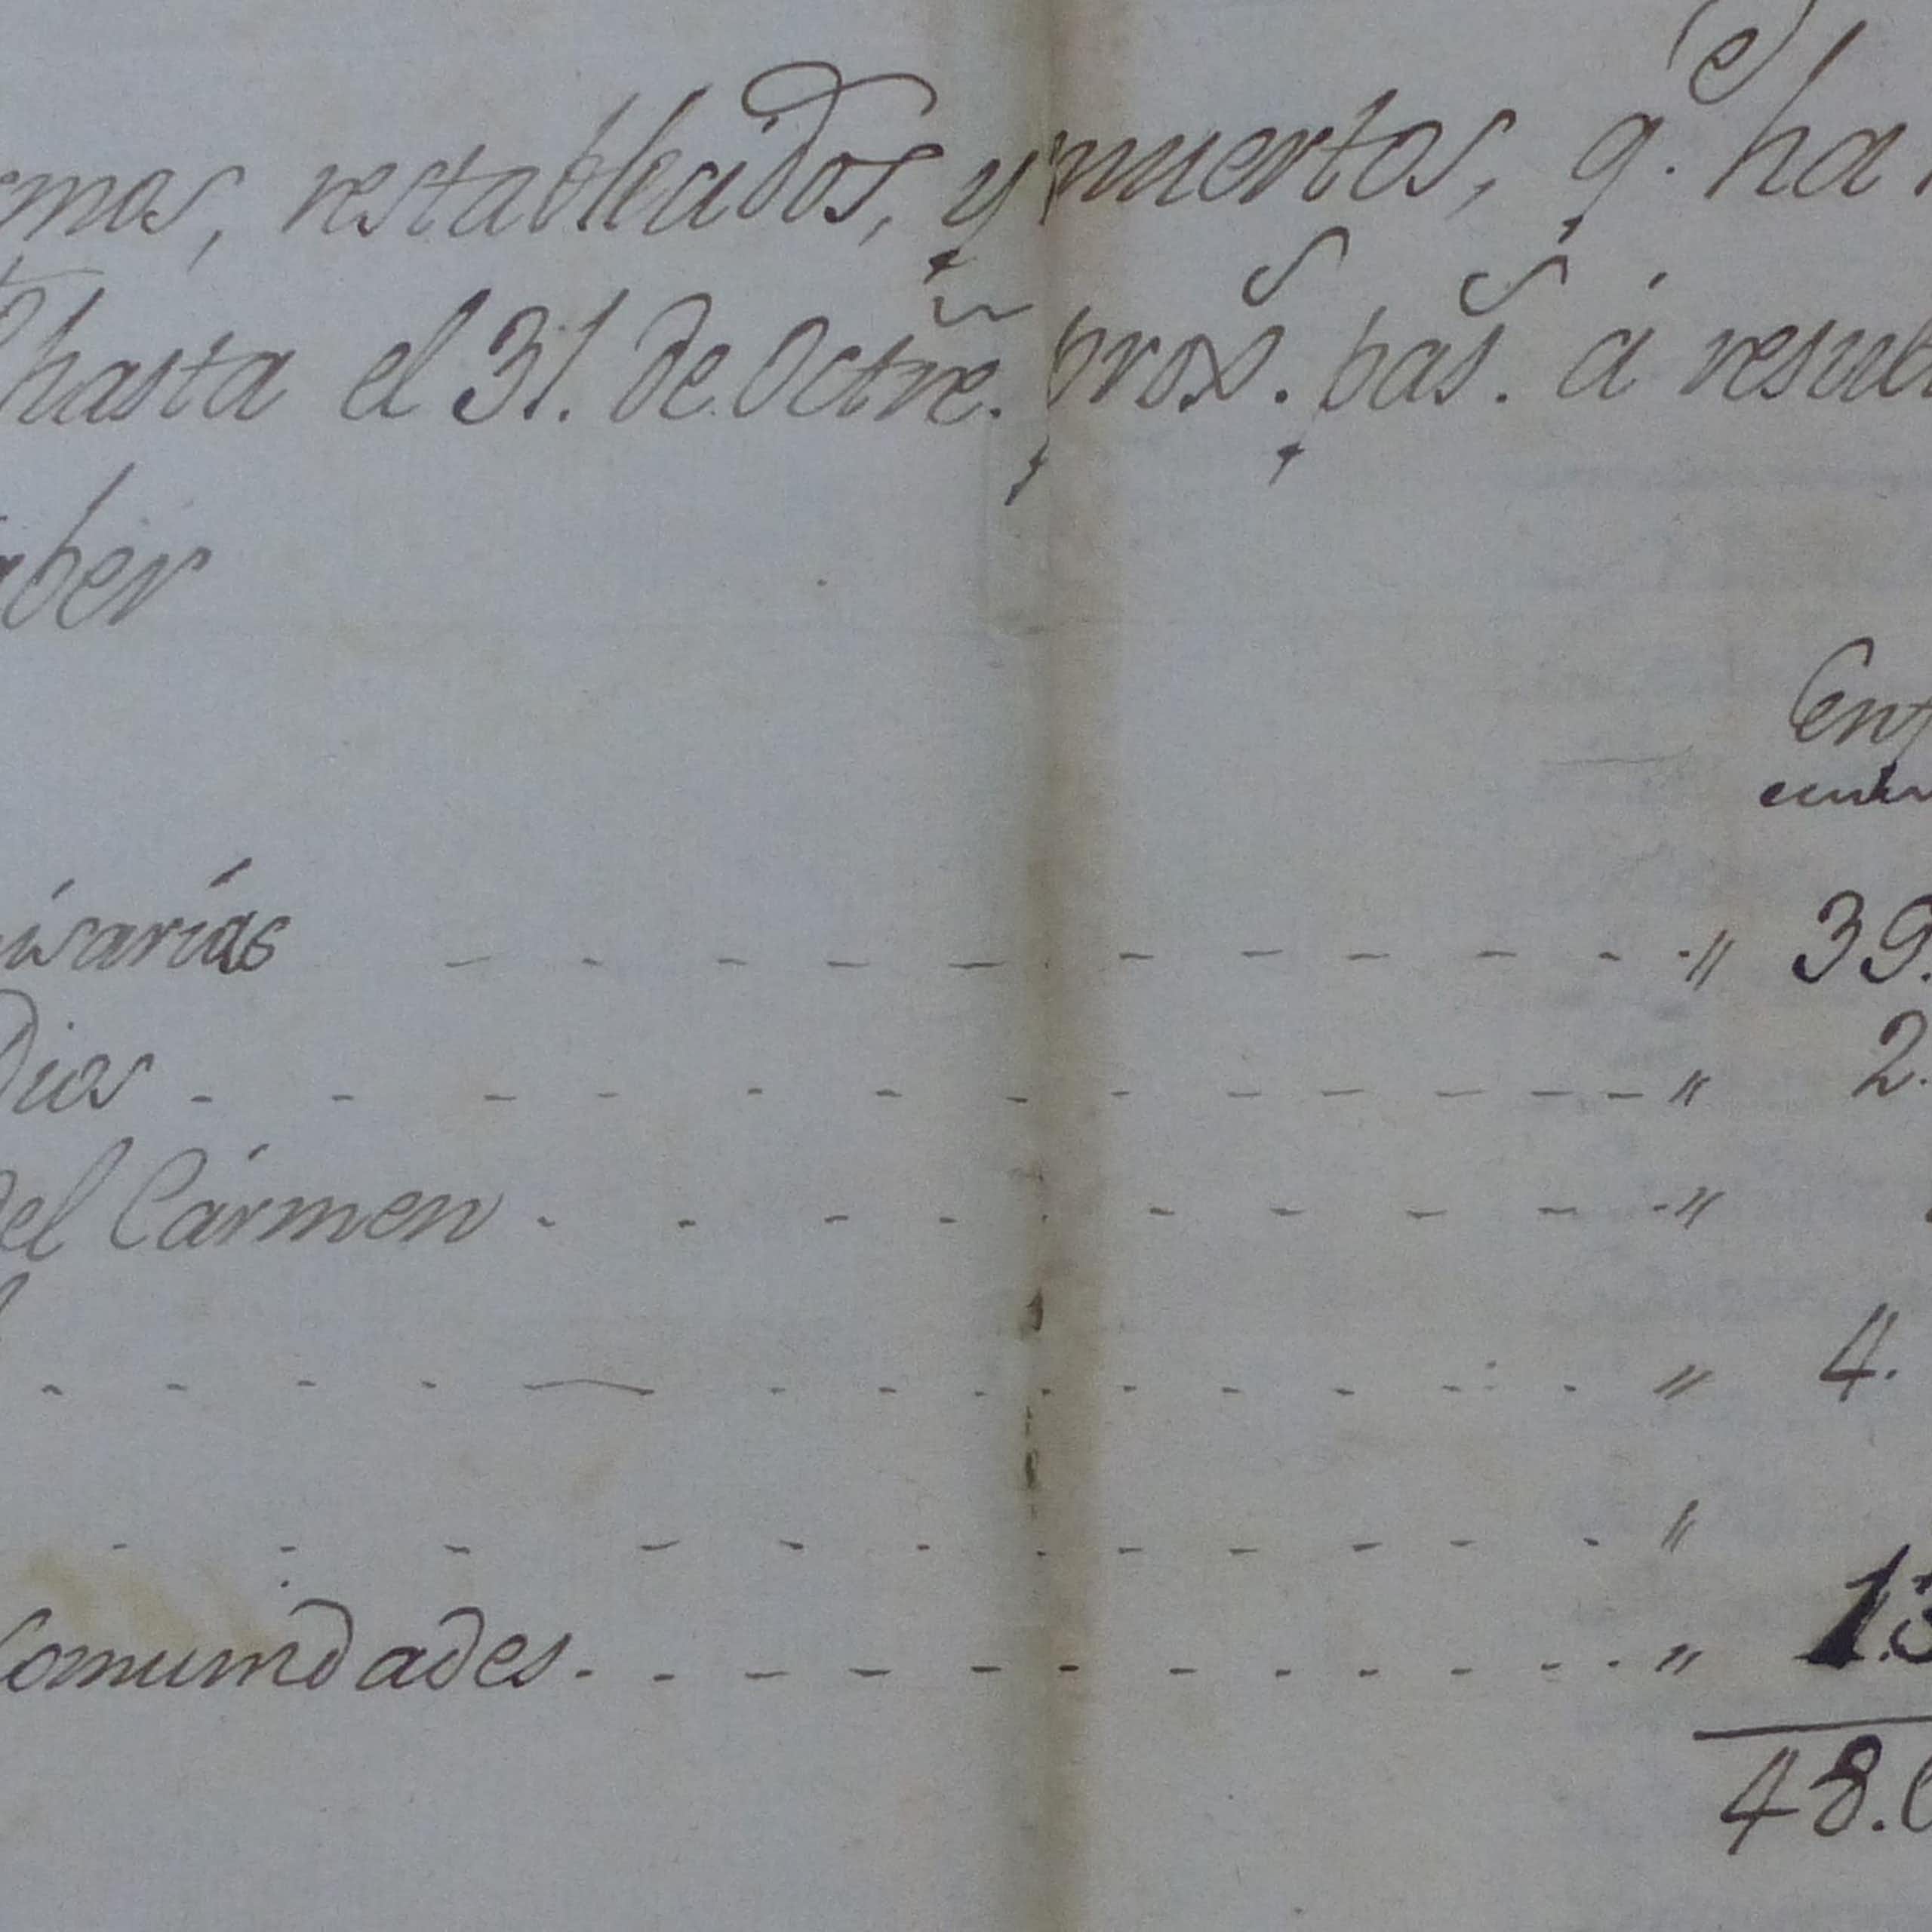 emos, restablecidos, y muertos, q.e ha
hasta el 31. de Octre. pros. pas. á resul
aber
Enf
isarías - - - - - - - - - - - - " 39.
Dios - - - - - - - - - - - - " 2.
del Cármen - - - - - - - - - - "
- - - - - - - - - - - - " 4.
- - - - - - - - - - - - "
Comunidades. - - - - - - - - - - " 13
48.